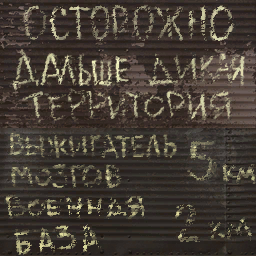 ОСТОРОЖНО
ДАЛЬШЕ ДИКАЯ
ТЕРРИТОРИЯ
ВЫЖИГАТЕЛЬ 5 КМ
МОЗГОВ
ВОЕННАЯ 2 КМ
БАЗА